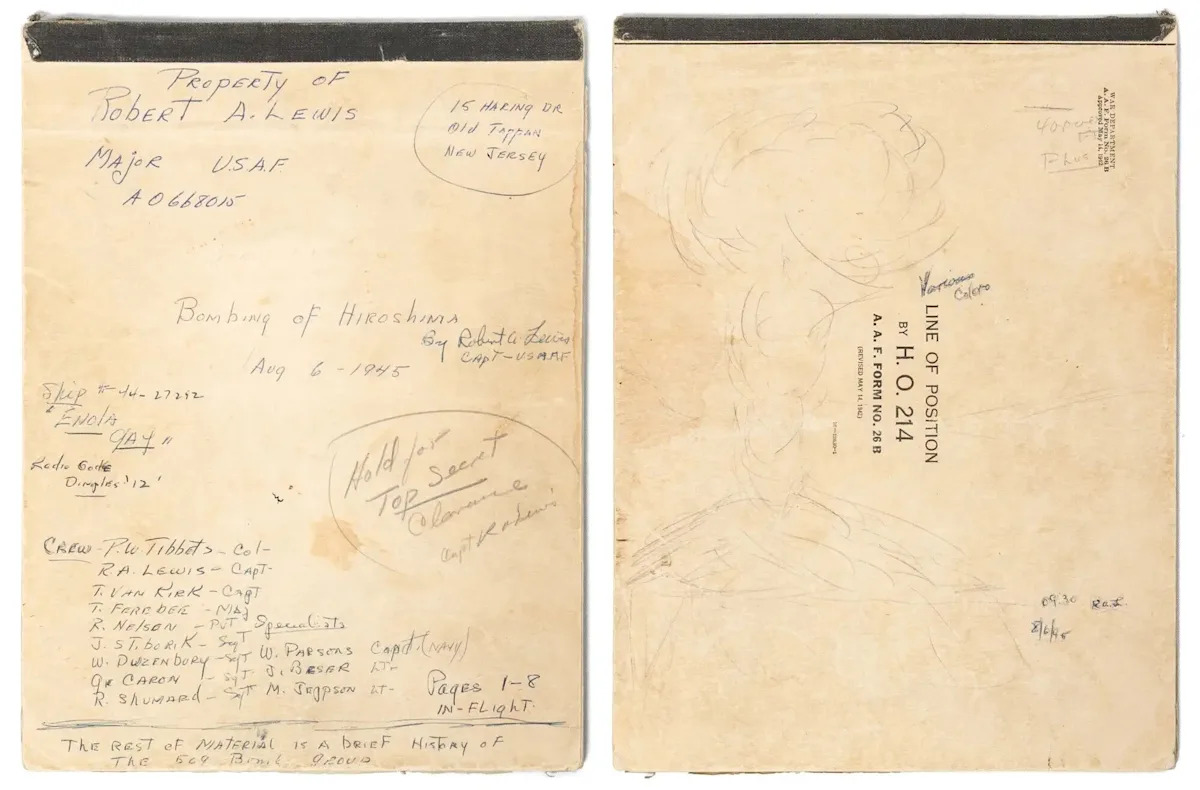 PROPERTY OF
ROBERT A. LEWIS
MAJOR USAF.
AO668015
15 HARING DR
Old TAPPAN
NEW JERSEY
BOMBING OF HIROSHIMA
By Robert A. Lewis
CAPT-USAAF
Aug 6-1945
Ship #-44-27292
"ENOLA
GAY"
Radio Code
Dimples '12'
Hold for
TOP Secret
Clearance
Capt R A Lewis
CREW-P.W. Tibbets-Col-
R.A. LEWIS-CAPT-
T. VAN KIRK-CAPT
T. FEREBEE-MAJ
R. NELSON-PVT
J. STIBORIK-SGT
W. DUZENBORY-SGT
GR CARON-SGT
R. SHUMARD-SGT
Specialists
W. PARSONS Capt. (NAVY)
J. BESER LT-
M. JEPPSON LT-
PAGES 1-8
IN-FLIGHT.
THE REST OF MATERIAL IS A BRIEF HISTORY OF
THE 509 BOMB. GROUP
WAR DEPARTMENT
A. A. F. Form No. 26 B
Approved May 14, 1942
Plus
Various
Colors
LINE OF POSITION
BY H. O. 214
A. A. F. FORM NO. 26 B
(REVISED MAY 14, 1942)
0930 R.A.L.
8/6/45